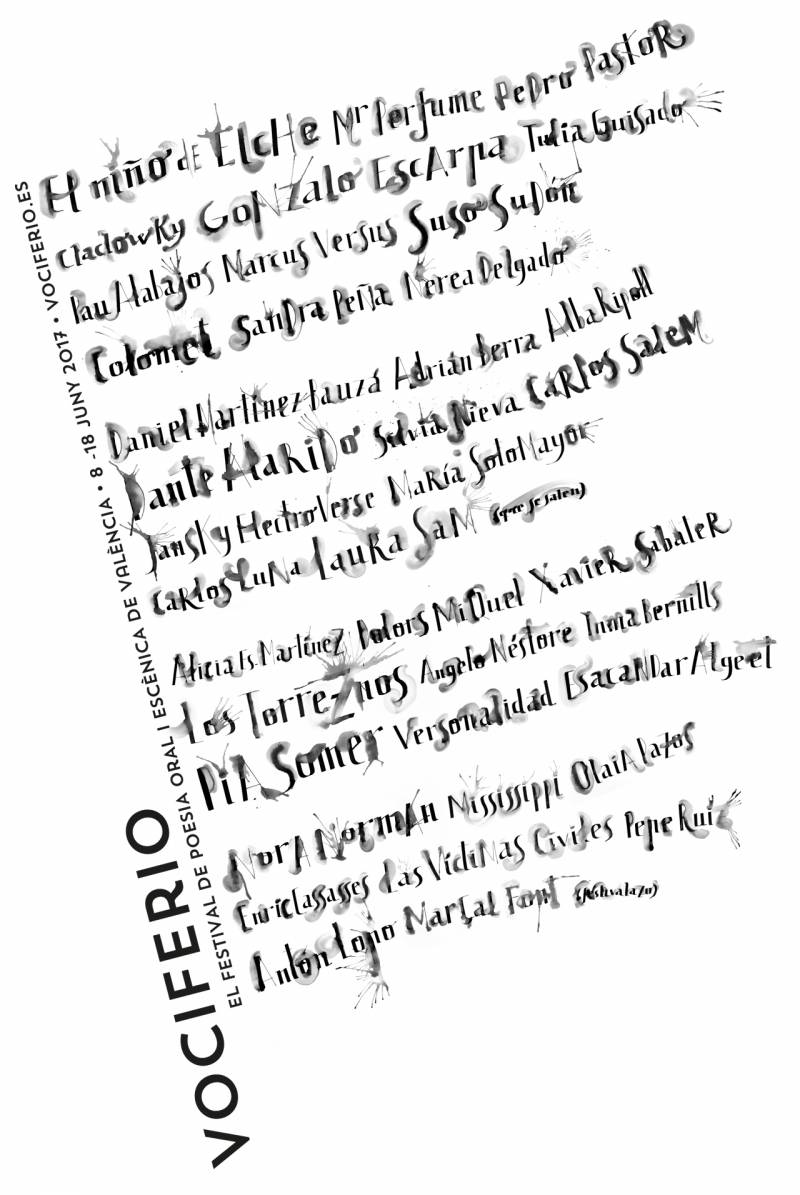 El niño de Elche Mr Perfume Pedro Pastor
Cladowky Gonzalo Escarpa Tulia Guisado
Pau Alalajos Marcus Versus Suso Sudón
Colomet Sandra Peña Nerea Delgado
Daniel Martínez Lauzá Adrián Berra Alba Ripoll
Dante Alarido Silvia Nieva Carlos Salem
Yansky Hectroverse María Solo Mayor
Carlos Luna Laura Sam (que se salen)
Alicia Es. Martínez Dolors Miquel Xavier Sabater
Los Torreznos Angelo Néstore Inma Bernills
Pilk Somer Versonalidad Esacandar Algeet
Nora Norman Mississippi Olaia Pazos
Enric Casasses Las Vidinas Civiles Pepe Ruiz
Antón Lopo Marçal Font (festivalazo)
VOCIFERIO
EL FESTIVAL DE POESIA ORAL I ESCÈNICA DE VALÈNCIA • 8 - 18 JUNY 2017 • VOCIFERIO.ES